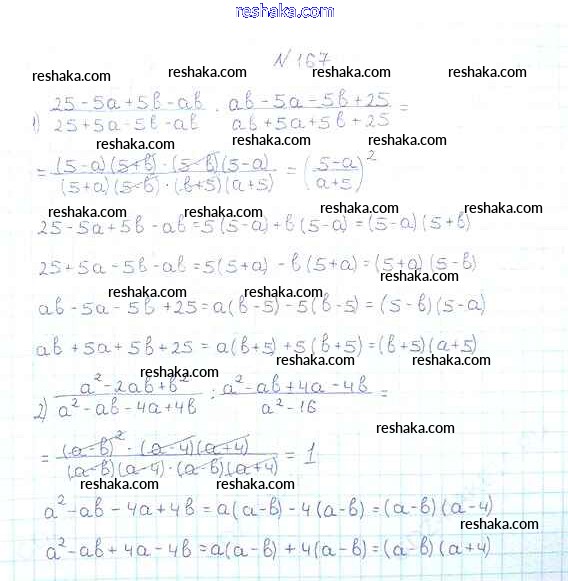 reshaka.com
№ 167
reshaka.com reshaka.com reshaka.com reshaka.com
1) (25 - 5a + 5b - ab)/(25 + 5a - 5b - ab) · (ab - 5a - 5b + 25)/(ab + 5a + 5b + 25) =
reshaka.com reshaka.com
= ((5-a)(5+b)·(5-b)(5-a))/((5+a)(5-b)·(b+5)(a+5)) = ((5-a)/(a+5))²
reshaka.com reshaka.com reshaka.com
25 - 5a + 5b - ab = 5(5-a) + b(5-a) = (5-a)(5+b)
reshaka.com reshaka.com
25 + 5a - 5b - ab = 5(5+a) - b(5+a) = (5+a)(5-b)
reshaka.com
reshaka.com reshaka.com
ab - 5a - 5b + 25 = a(b-5) - 5(b-5) = (5-b)(5-a)
reshaka.com
ab + 5a + 5b + 25 = a(b+5) + 5(b+5) = (b+5)(a+5)
reshaka.com reshaka.com
reshaka.com
2) (a² - 2ab + b²)/(a² - ab - 4a + 4b) : (a² - ab + 4a - 4b)/(a² - 16) =
reshaka.com reshaka.com
reshaka.com
= ((a-b)²·(a-4)(a+4))/((a-b)(a-4)·(a-b)(a+4)) = 1
reshaka.com reshaka.com
a² - ab - 4a + 4b = a(a-b) - 4(a-b) = (a-b)(a-4)
reshaka.com
reshaka.com reshaka.com
a² - ab + 4a - 4b = a(a-b) + 4(a-b) = (a-b)(a+4)
reshaka.com reshaka.com